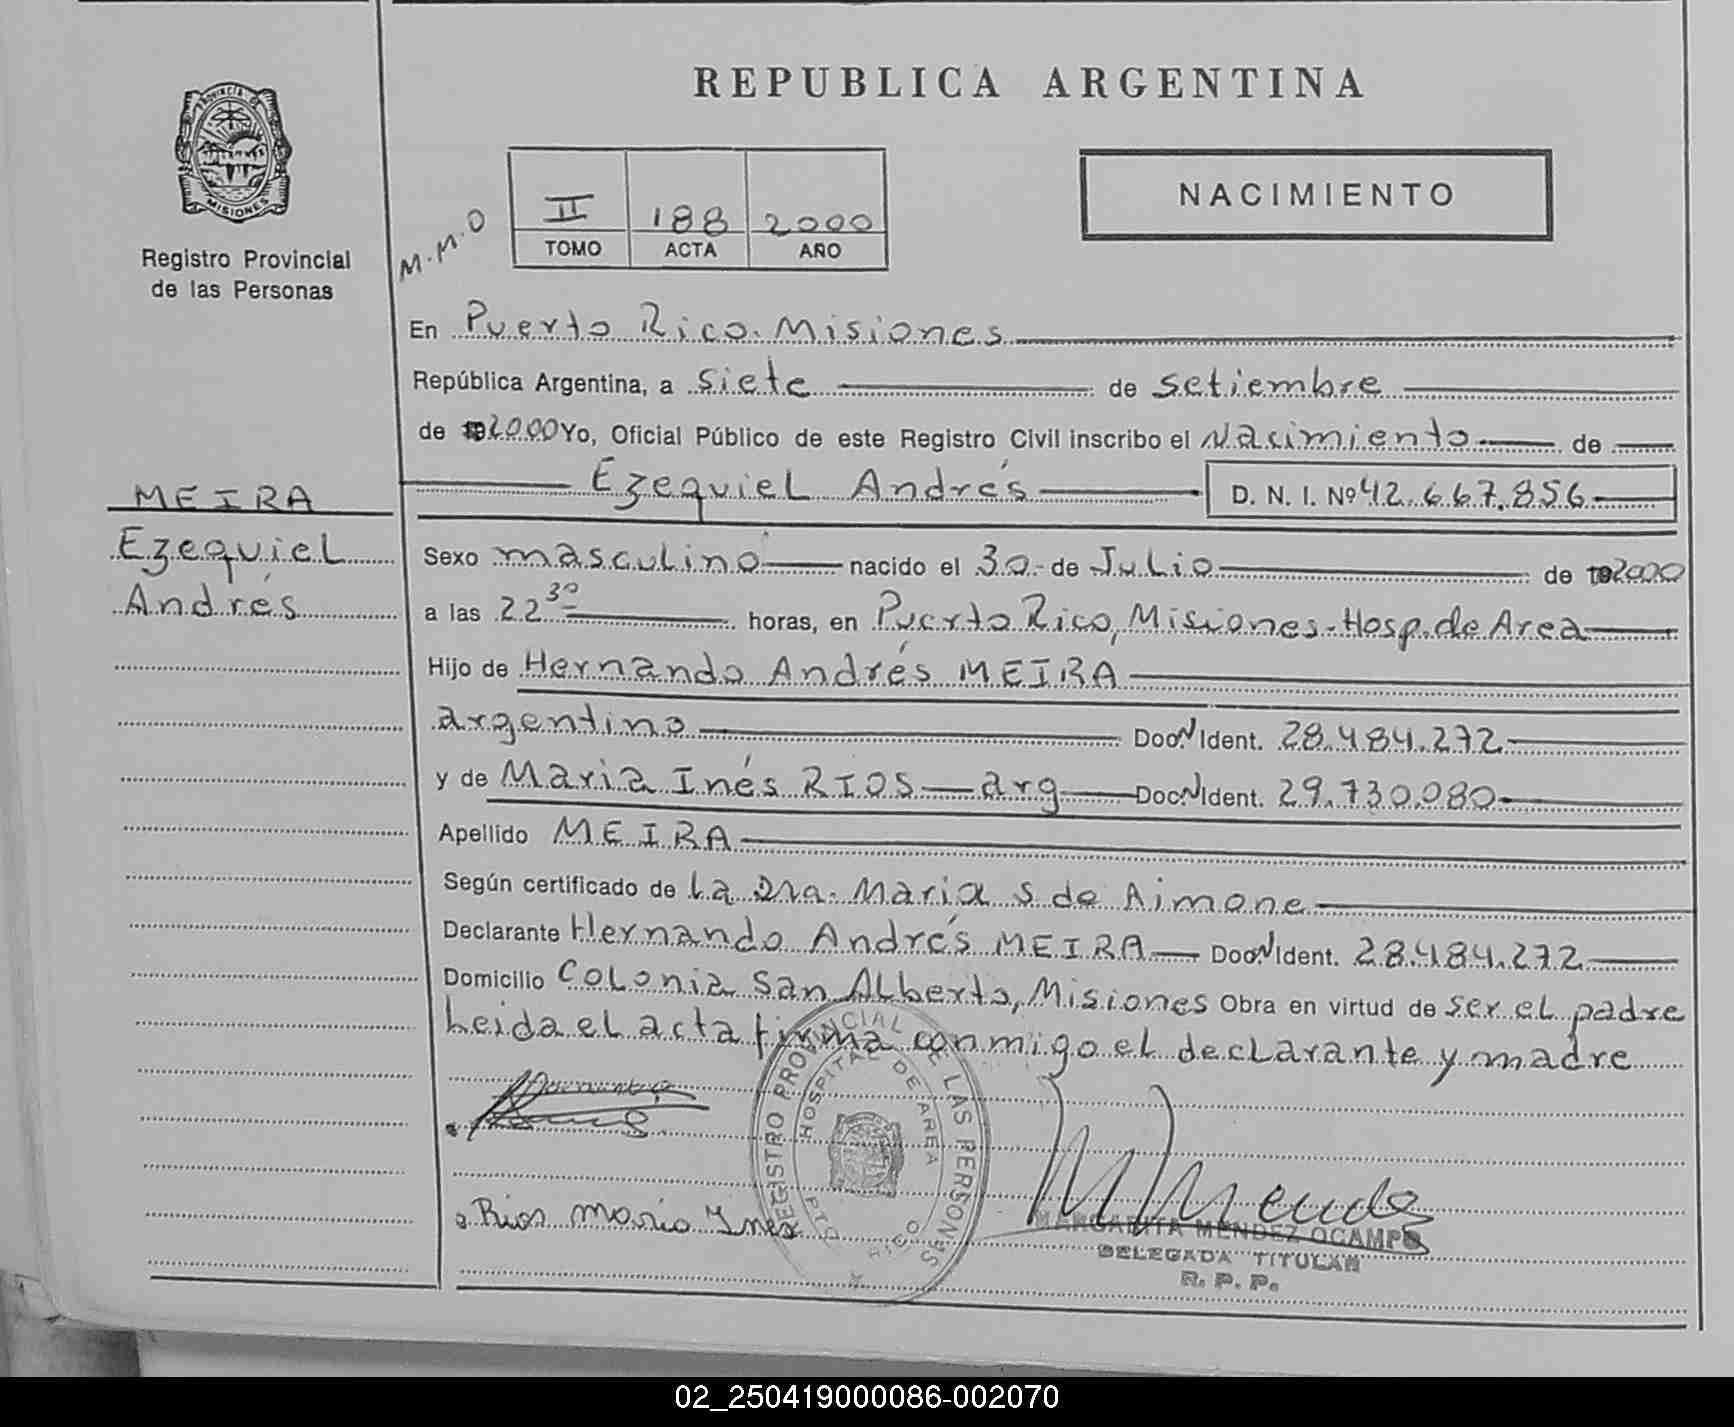 REPUBLICA ARGENTINA
PROVINCIA DE
MISIONES
Registro Provincial
de las Personas
M.M.O
II 188 2000
TOMO ACTA AÑO
NACIMIENTO
En Puerto Rico. Misiones
República Argentina, a siete de setiembre
de 2000 Yo, Oficial Público de este Registro Civil inscribo el Nacimiento de
Ezequiel Andrés D. N. I. Nº 42.667.856
MEIRA
Ezequiel
Andrés
Sexo masculino nacido el 30 de Julio de 2000
a las 22 30 horas, en Puerto Rico, Misiones-Hosp. de Area
Hijo de Hernando Andrés MEIRA
argentino Doc. N Ident. 28.484.272
y de Maria Inés RIOS — arg — Doc. N Ident. 29.730.080
Apellido MEIRA
Según certificado de La Dra. Maria S de Aimone
Declarante Hernando Andrés MEIRA Doc. N Ident. 28.484.272
Domicilio Colonia San Alberto, Misiones Obra en virtud de ser el padre
Leida el acta firma conmigo el declarante y madre
REGISTRO PROVINCIAL DE LAS PERSONAS
HOSPITAL DE AREA
PTO RICO
Rios Maria Ines
MMendez
MARGARITA MENDEZ OCAMPO
DELEGADA TITULAR
R. P. P.
02_250419000086-002070